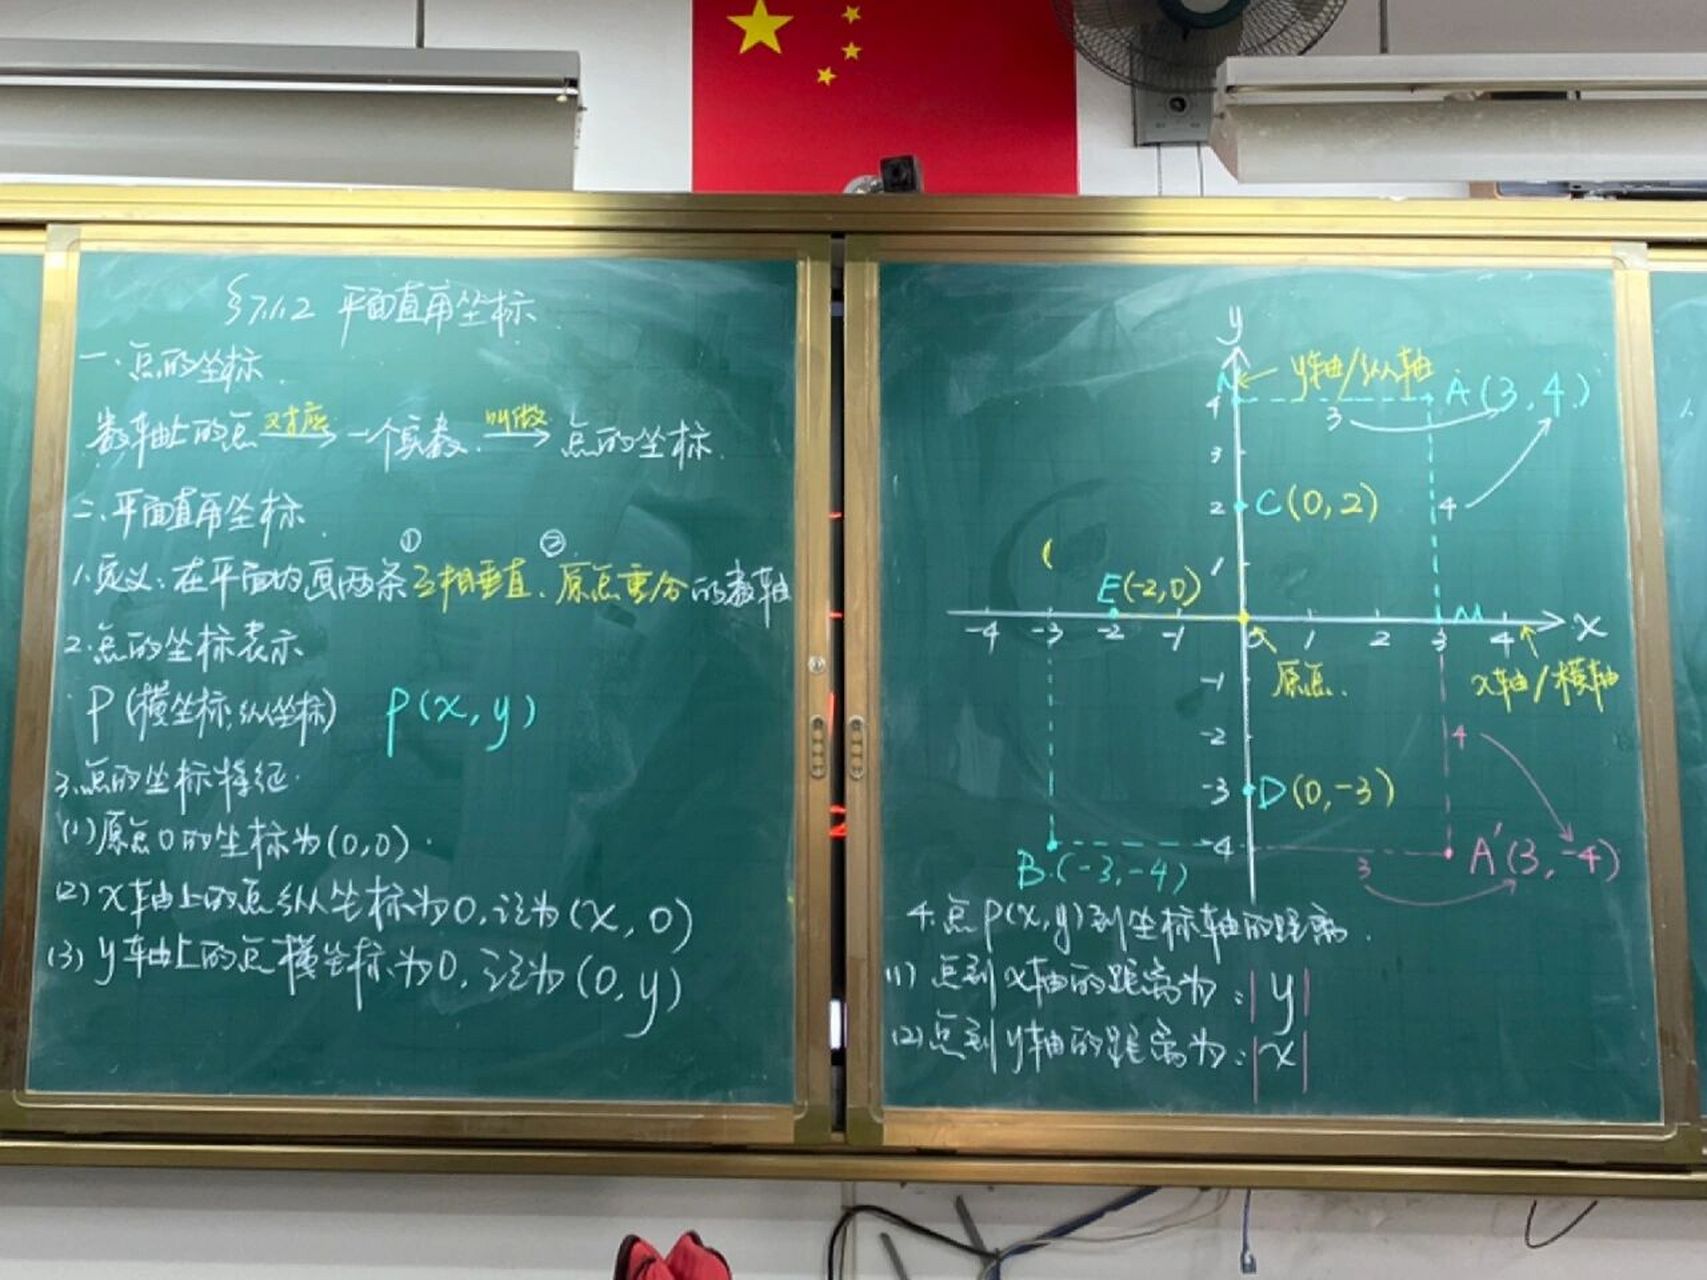 §7.1.2 平面直角坐标
一.点的坐标
数轴上的点 对应 一个实数 叫做 点的坐标.
二.平面直角坐标
① ②
1.定义:在平面内画两条互相垂直、原点重合的数轴
2.点的坐标表示
P(横坐标,纵坐标) P(x,y)
3.点的坐标特征.
(1)原点O的坐标为(0,0).
(2)x轴上的点纵坐标为0,记为(x,0)
(3)y轴上的点横坐标为0,记为(0,y)
y
N y轴/纵轴
4 3 A(3,4)
3
2 C(0,2) 4
1
( E(-2,0)
-4 -3 -2 -1 0 1 2 3 M 4 x
-1 原点. x轴/横轴
-2 4
-3 D(0,-3)
-4
B.(-3,-4) 3 A'(3,-4)
4.点P(x,y)到坐标轴的距离.
(1)点到x轴的距离为:|y|
(2)点到y轴的距离为:|x|